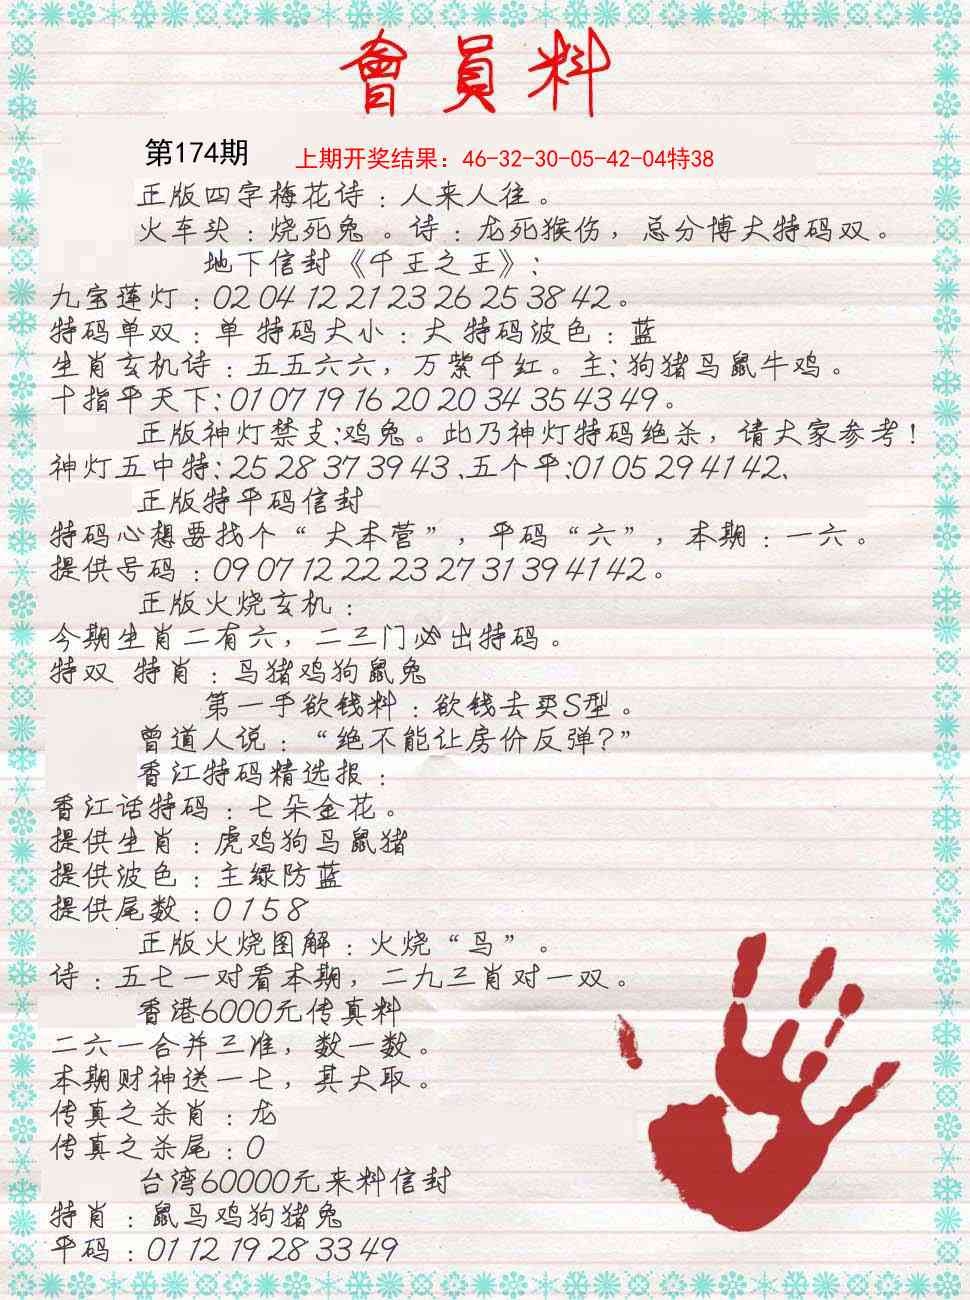 會員料
第174期 上期开奖结果：46-32-30-05-42-04特38
正版四字梅花诗：人来人往。
火车头：烧死兔。诗：龙死猴伤，总分博大特码双。
地下信封《千王之王》：
九宝莲灯：02 04 12 21 23 26 25 38 42。
特码单双：单 特码大小：大 特码波色：蓝
生肖玄机诗：五五六六，万紫千红。主：狗猪马鼠牛鸡。
十指平天下：01 07 19 16 20 20 34 35 43 49。
正版神灯禁支：鸡兔。此乃神灯特码绝杀，请大家参考！
神灯五中特：25 28 37 39 43、五个平：01 05 29 41 42、
正版特平码信封
特码心想要找个“大本营”，平码“六”，本期：一六。
提供号码：09 07 12 22 23 27 31 39 41 42。
正版火烧玄机：
今期生肖二有六，二三门必出特码。
特双 特肖：马猪鸡狗鼠兔
第一手欲钱料：欲钱去买S型。
曾道人说：“绝不能让房价反弹？”
香江特码精选报：
香江话特码：七朵金花。
提供生肖：虎鸡狗马鼠猪
提供波色：主绿防蓝
提供尾数：0 1 5 8
正版火烧图解：火烧“鸟”。
诗：五七一对看本期，二九三肖对一双。
香港6000元传真料
二六一合并三准，数一数。
本期财神送一七，其大取。
传真之杀肖：龙
传真之杀尾：0
台湾60000元来料信封
特肖：鼠马鸡狗猪兔
平码：01 12 19 28 33 49